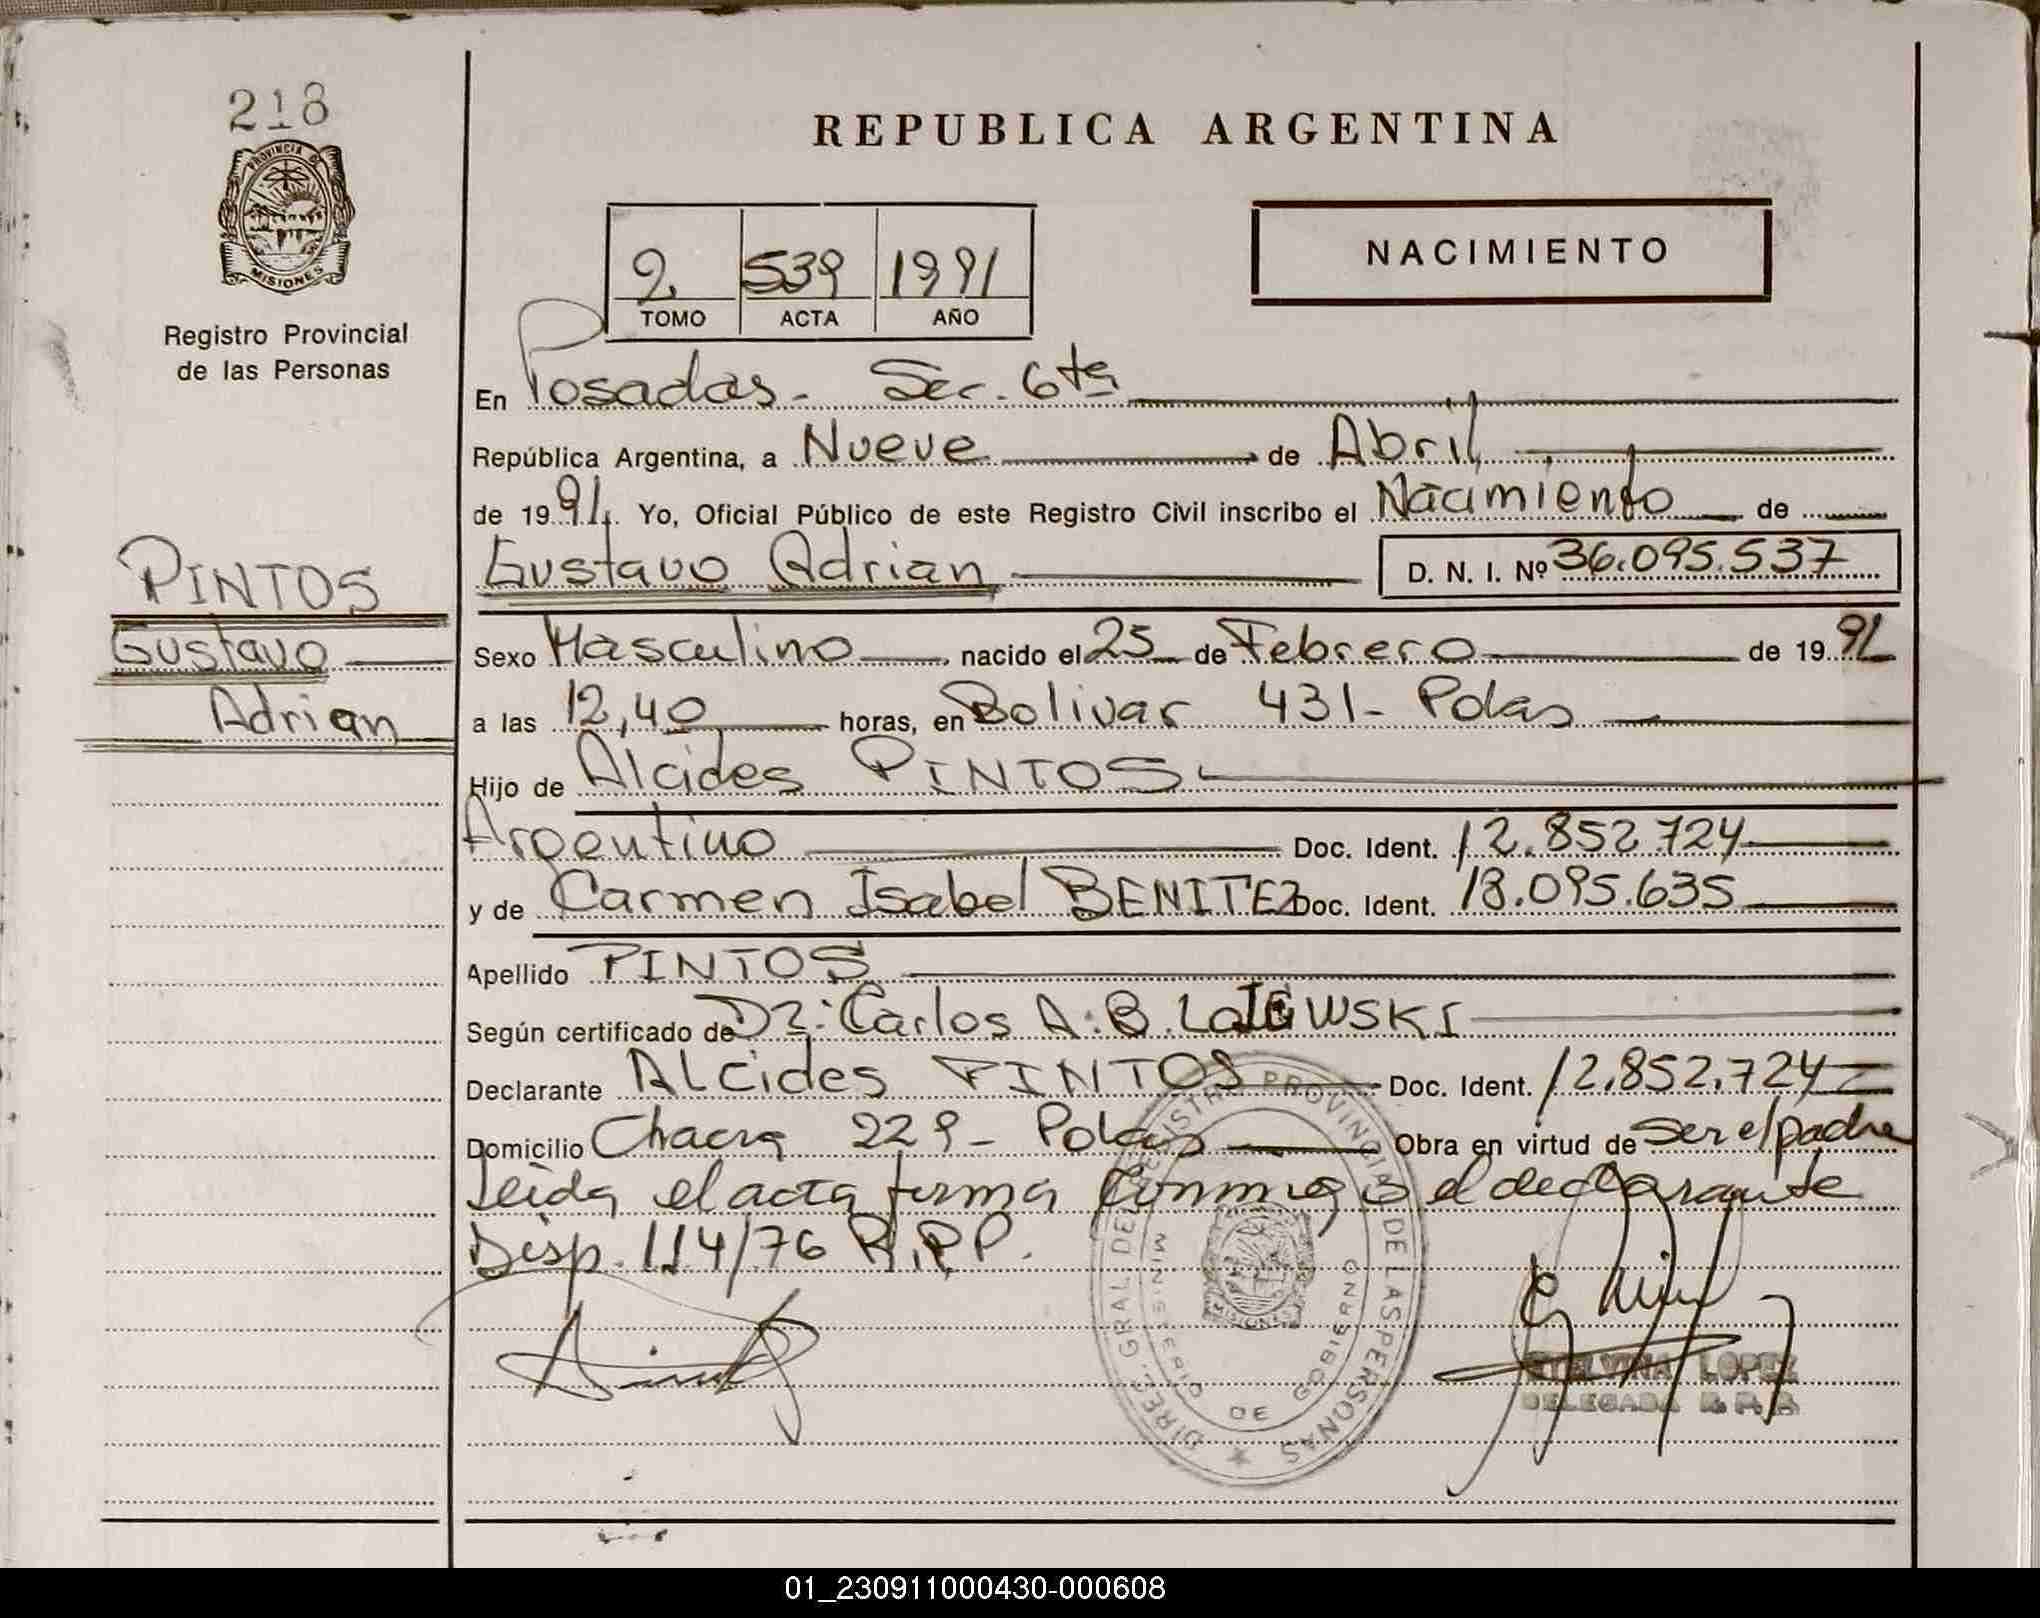 218
PROVINCIA DE
MISIONES
Registro Provincial
de las Personas
PINTOS
Gustavo
Adrian
REPUBLICA ARGENTINA
2 539 1991
TOMO ACTA AÑO
NACIMIENTO
En Posadas - Sec. 6ta
República Argentina, a Nueve de Abril
de 1991. Yo, Oficial Público de este Registro Civil inscribo el Nacimiento de
Gustavo Adrian D. N. I. Nº 36.095.537
Sexo Masculino nacido el 25 de Febrero de 1991
a las 12,40 horas, en Bolivar 431 - Pdas
Hijo de Alcides PINTOS
Argentino Doc. Ident. 12.852.724
y de Carmen Isabel BENITEZ Doc. Ident. 18.095.635
Apellido PINTOS
Según certificado de Dr: Carlos A. B. LOJEWSKI
Declarante Alcides PINTOS Doc. Ident. 12.852.724
Domicilio Chacra 229 - Pdas Obra en virtud de ser el padre
Leida el acta firma conmigo el declarante
Disp. 114/76 R.P.P.
DIREC. GRAL DEL REGISTRO PROVINCIAL DE LAS PERSONAS
MINISTERIO DE GOBIERNO
MISIONES
LOPEZ
DELEGADA R. P. P.
01_230911000430-000608